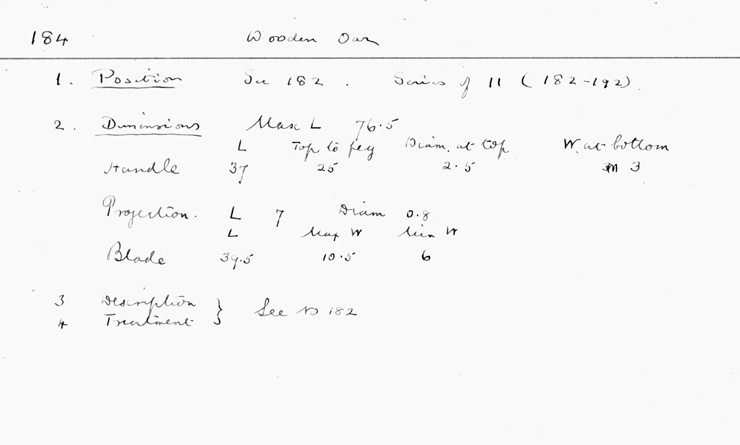 184 Wooden Oar
1. Position See 182. Series of 11 (182-192).
2. Dimensions Max L 76.5
L Top to peg Diam. at top W. at bottom
Handle 37 25 2.5 3
Projection. L 7 Diam 0.8
L Max W Min W
Blade 39.5 10.5 6
3 Description } See No 182
4 Treatment